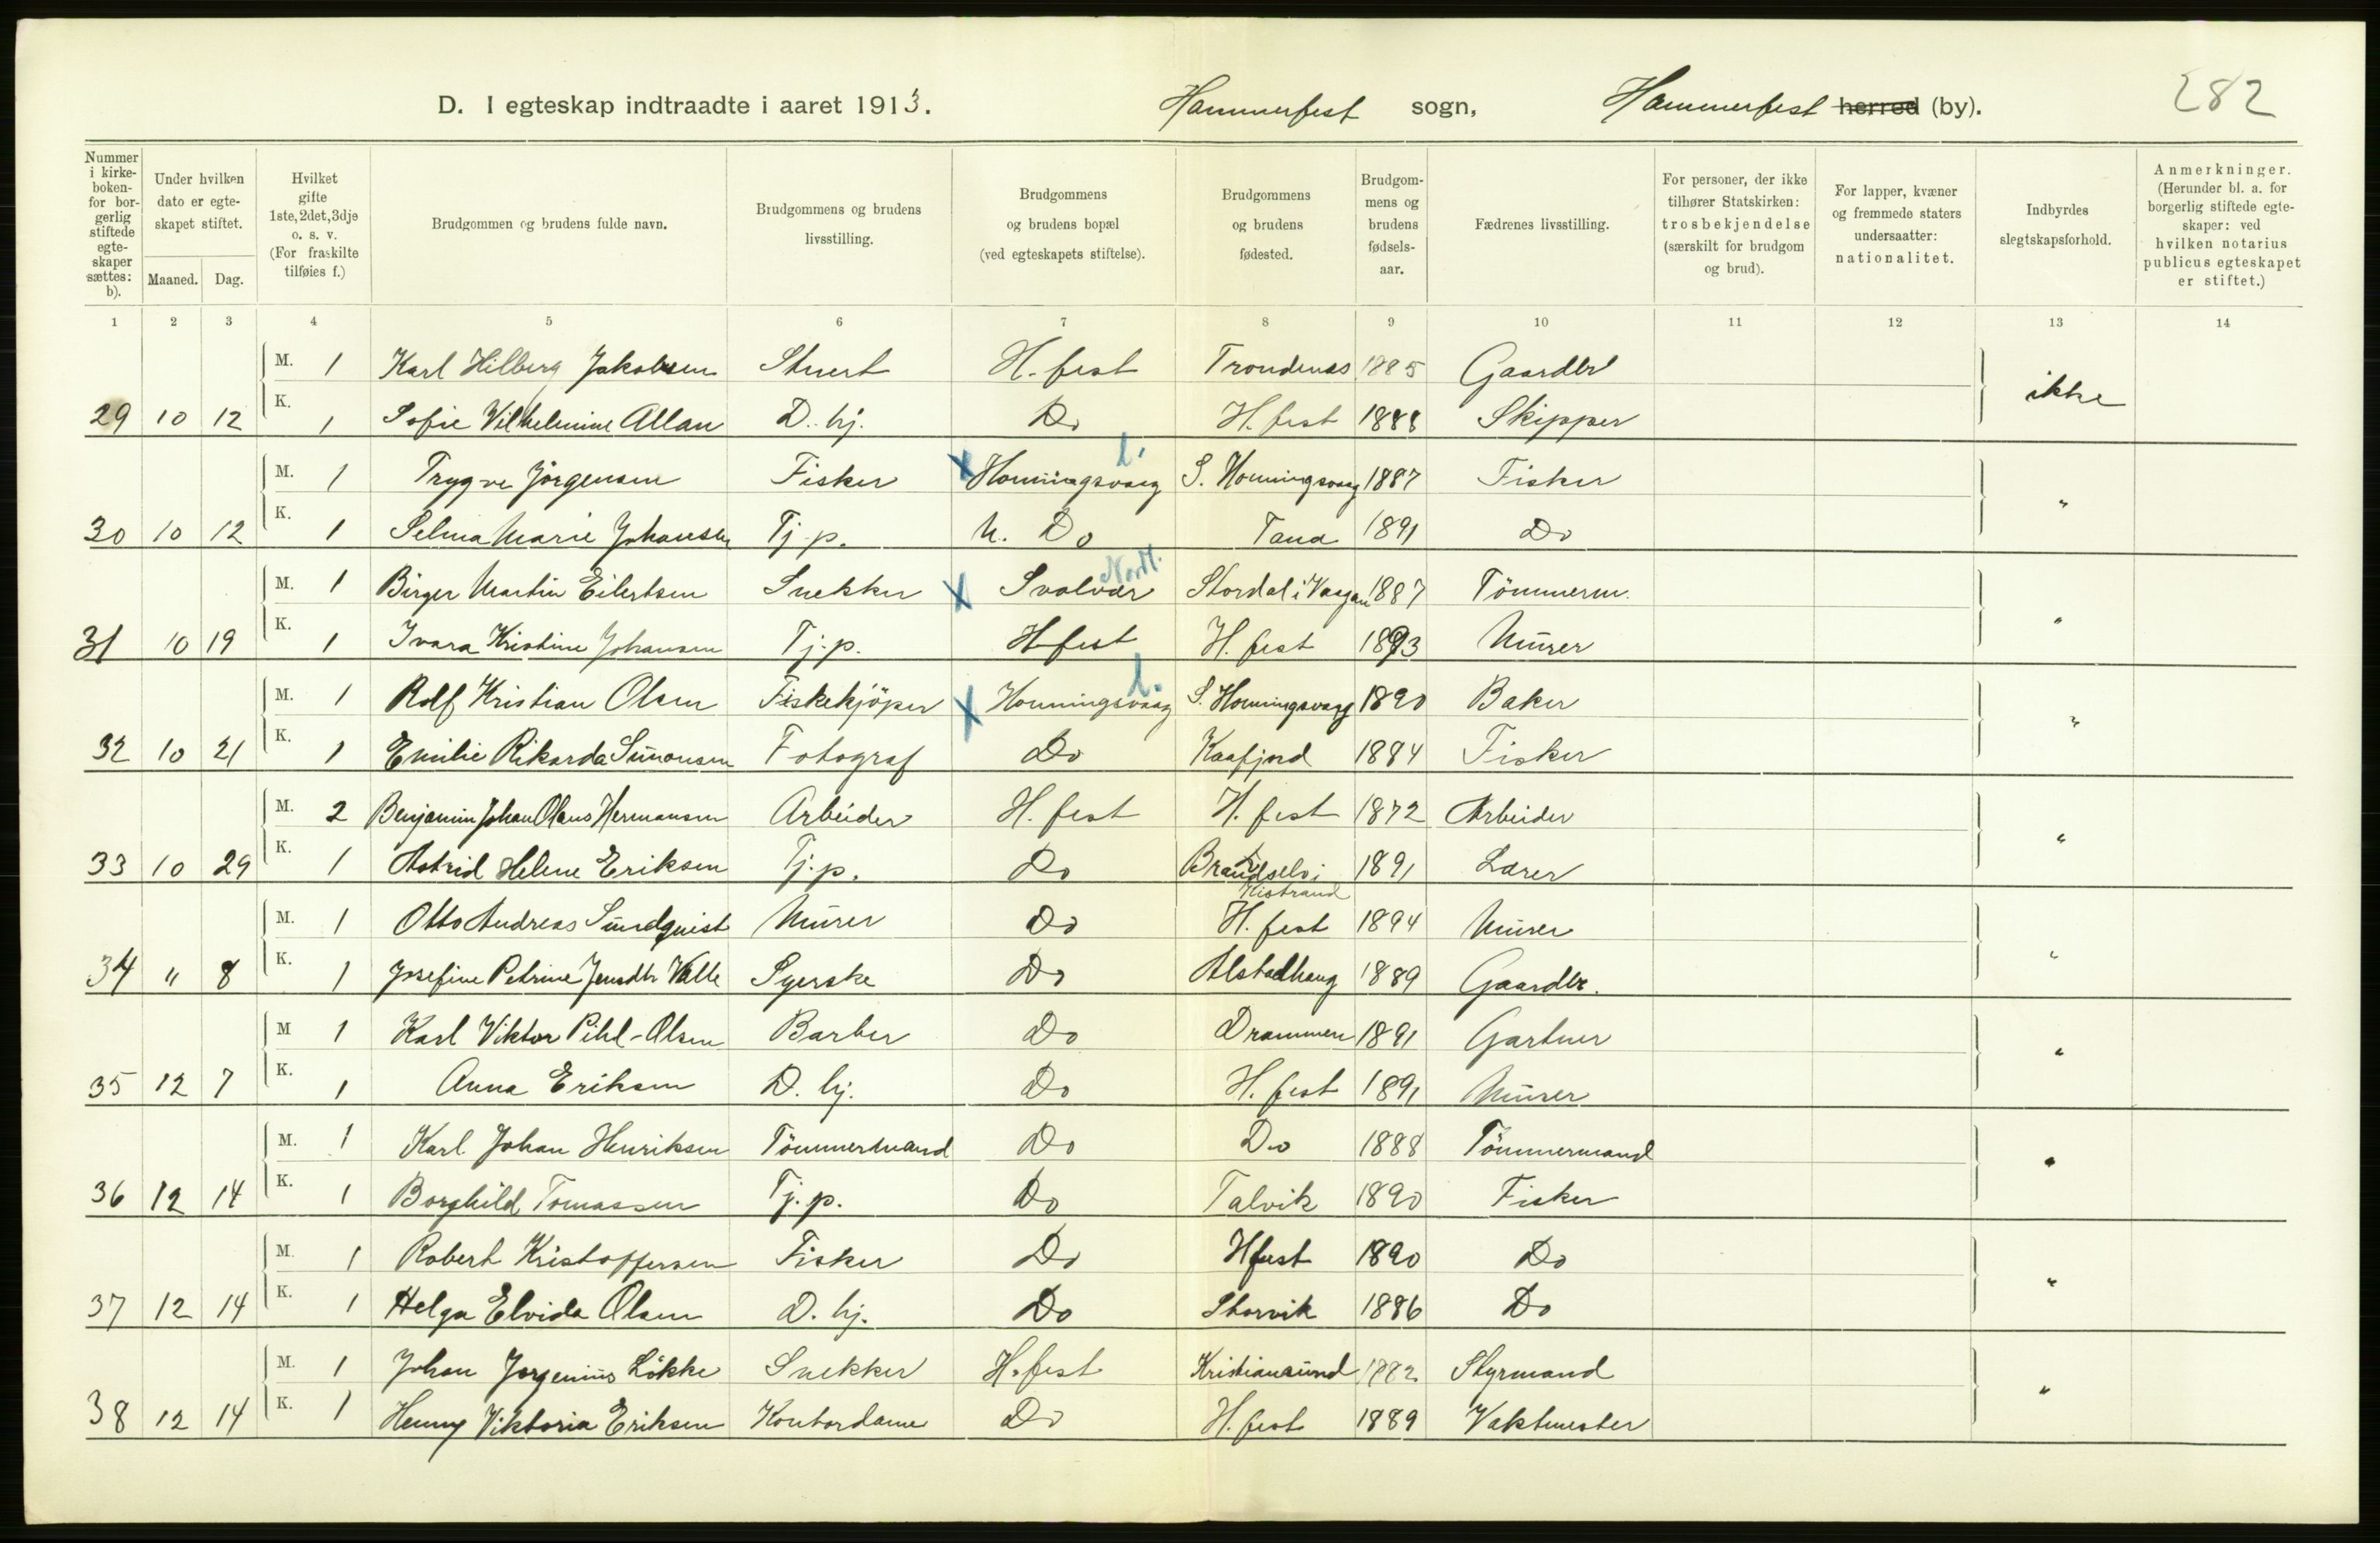 D. I egteskap indtraadte i aaret 1913. Hammerfest sogn, Hammerfest herred (by). 282
Nummer i kirkeboken- for borgerlig stiftede egteskaper sættes: b).
Under hvilken dato er egteskapet stiftet.
Maaned. Dag.
Hvilket gifte 1ste, 2det, 3dje o. s. v. (For fraskilte tilføies f.)
Brudgommen og brudens fulde navn.
Brudgommens og brudens livsstilling.
Brudgommens og brudens bopæl (ved egteskapets stiftelse).
Brudgommens og brudens fødested.
Brudgommens og brudens fødsels-aar.
Fædrenes livsstilling.
For personer, der ikke tilhører Statskirken: trosbekjendelse (særskilt for brudgom og brud).
For lapper, kvæner og fremmede staters undersaatter: nationalitet.
Indbyrdes slegtskapsforhold.
Anmerkninger. (Herunder bl. a. for borgerlig stiftede egteskaper: ved hvilken notarius publicus egteskapet er stiftet.)
1 2 3 4 5 6 7 8 9 10 11 12 13 14
M. 1 Karl Hilberg Jakobsen Stuert H. fest Trondenæs 1885 Gaardbr
29 10 12 K. 1 Sofie Vilhelmine Allan D. hj. Do H. fest 1888 Skipper ikke
M. 1 Trygve Jörgensen Fisker Honningsvaag S. Honningsvaag 1887 Fisker
30 10 12 K. 1 Selma Marie Johansen Tj. p. Do Tana 1891 Do "
M. 1 Birger Martin Eilertsen Snekker Svolvær Nordl. Stordal i Vaagan 1887 Tömmerm.
31 10 19 K. 1 Ivara Kristine Johansen Tj. p. H.fest H. fest 1893 Murer "
M. 1 Rolf Kristian Olsen Fiskekjöper Honningsvaag S. Honningsvaag 1890 Baker
32 10 21 K. 1 Emilie Rikarda Simonsen Fotograf Do Kaafjord 1884 Fisker "
M. 2 Benjamin Johan Olaus Hermansen Arbeider H. fest H. fest 1872 Arbeider
33 10 29 K. 1 Astrid Helene Eriksen Tj. p. Do Brandselv i Kistrand 1891 Lærer "
M. 1 Otto Andreas Sundquist Murer Do H. fest 1894 Murer
34 " 8 K. 1 Josefine Petrine Jensdtr Valle Syerske Do Alstadhaug 1889 Gaardbr. "
M 1 Karl Viktor Pihl-Olsen Barber Do Drammen 1891 Gartner
35 12 7 K. 1 Anna Eriksen D. hj. Do H. fest 1891 Murer "
M. 1 Karl Johan Henriksen Tömmermand Do Do 1888 Tömmermand
36 12 14 K. 1 Borghild Tomassen Tj. p. Do Talvik 1890 Fisker "
M. 1 Robert Kristoffersen Fisker Do Hfest 1890 Do
37 12 14 K. 1 Helga Elvida Olsen D. hj. Do Storvik 1886 Do "
M. 1 Johan Jørgenius Løkke Snekker H. fest Kristiansund 1882 Styrmand
38 12 14 K. 1 Henny Viktoria Eriksen Kontordame Do H. fest 1889 Vaktmester "